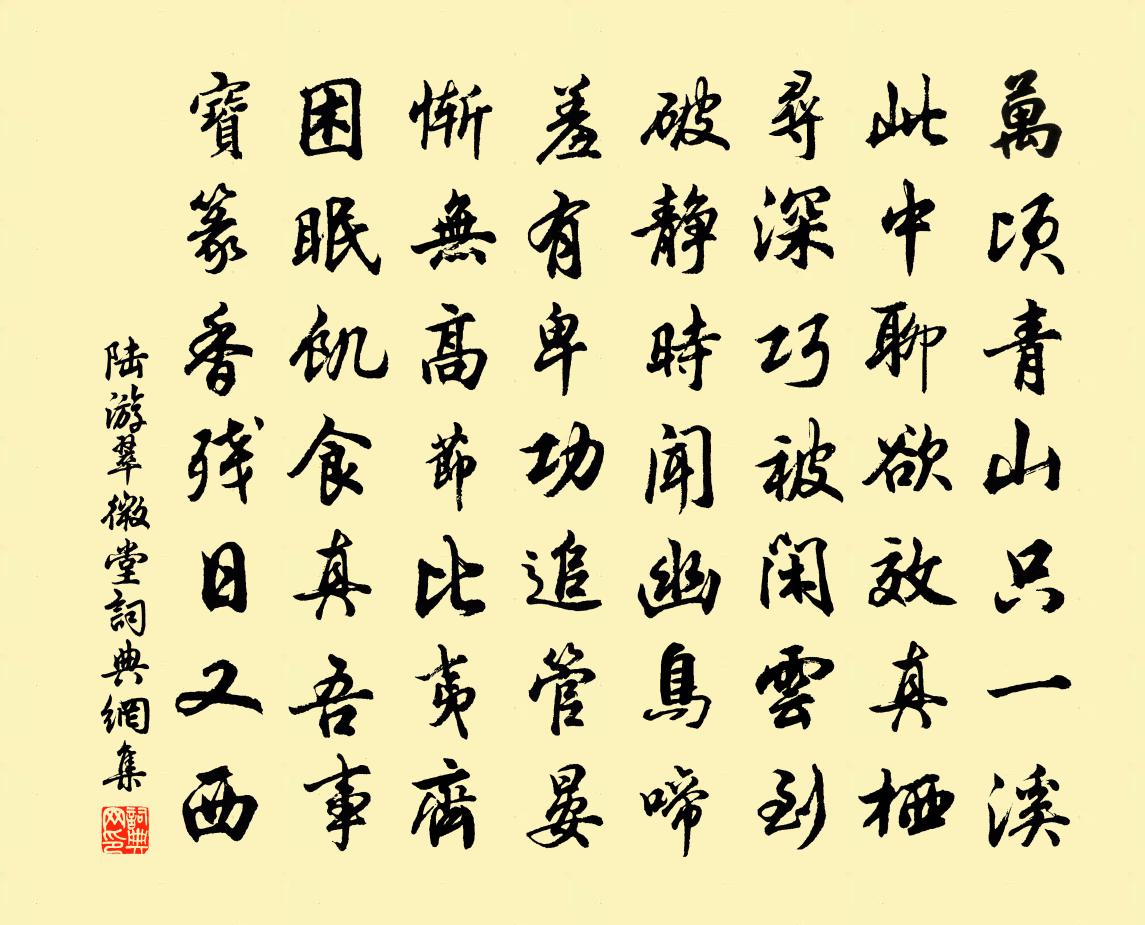 萬頃青山只一溪
此中聊欲效真栖
尋深巧被閑雲到
破靜時聞幽鳥啼
羞有卑功追管晏
慚無高節比夷齊
困眠飢食真吾事
寶篆香殘日又西
陸游翠微堂詞典網集
詞典網印